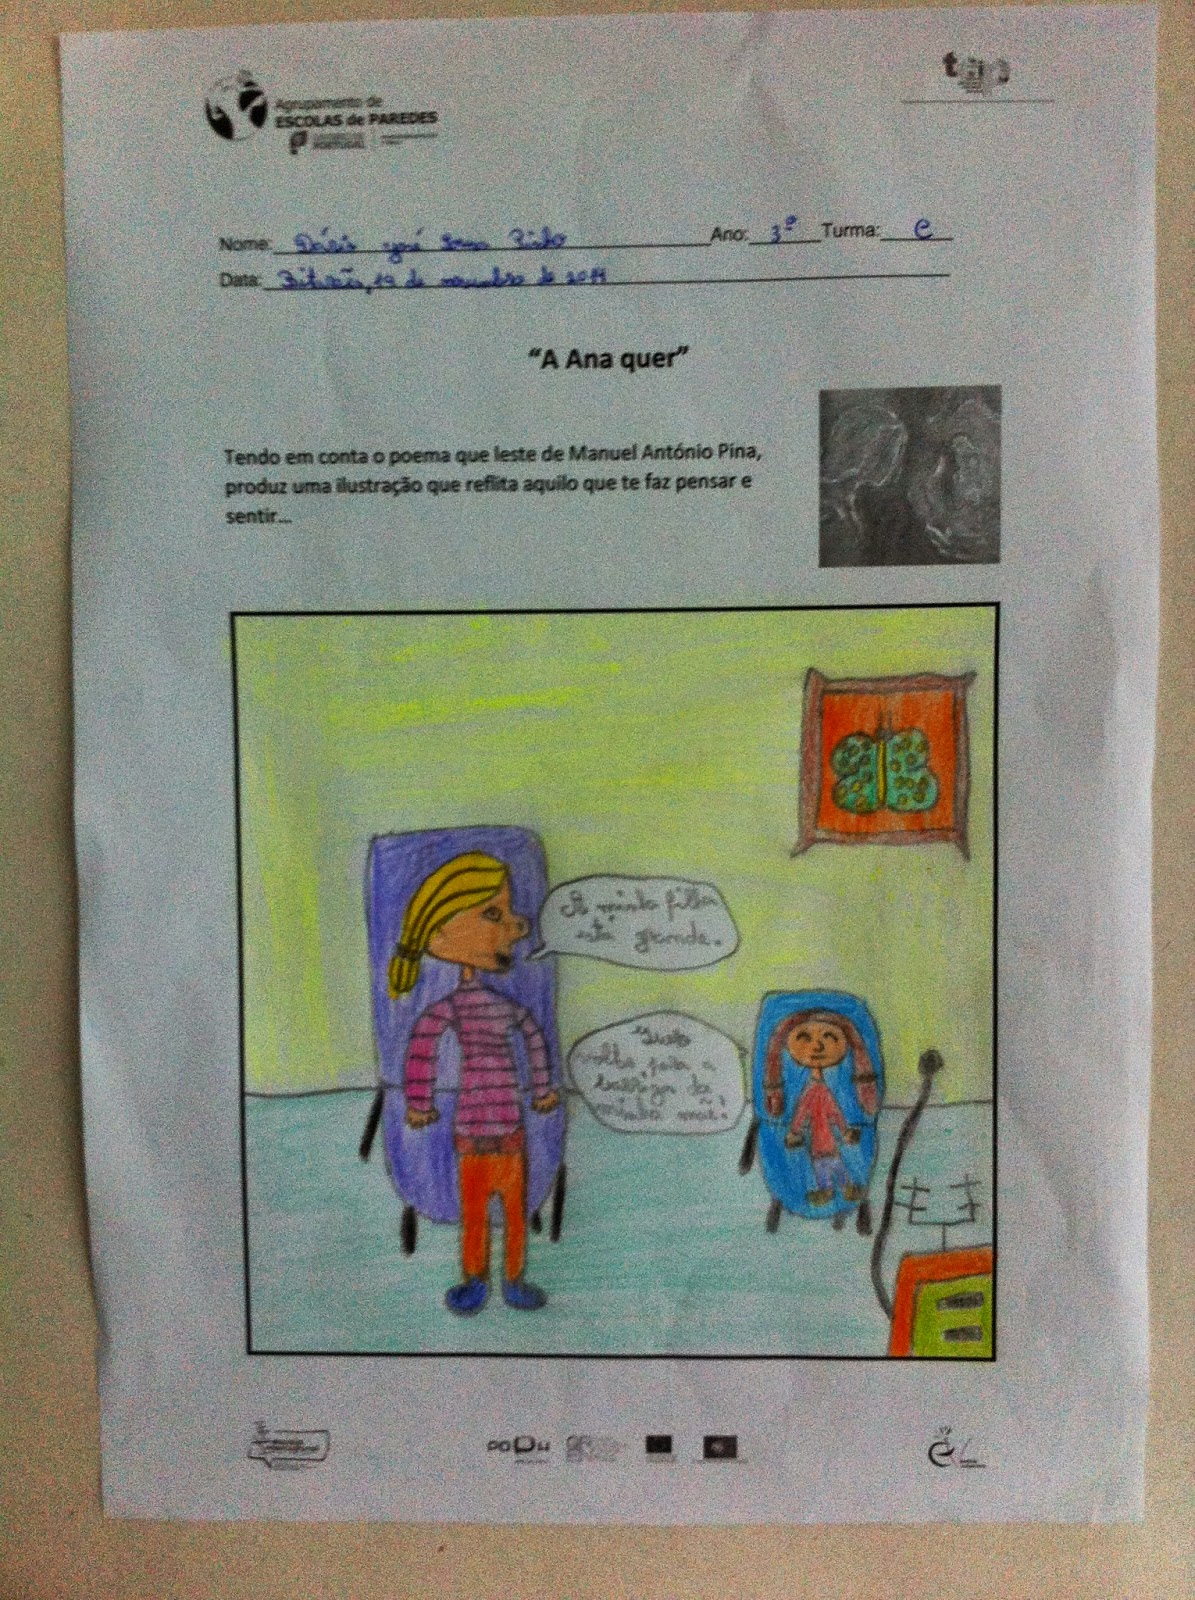 Agrupamento de
ESCOLAS de PAREDES
PORTUGAL
Nome: José Pinto Ano: 3º Turma: C
Data: Bitarães, 19 de novembro de 2014
“A Ana quer”
Tendo em conta o poema que leste de Manuel António Pina,
produz uma ilustração que reflita aquilo que te faz pensar e
sentir...
A minha filha
está grande.
volta para a
barriga da
minha mãe!